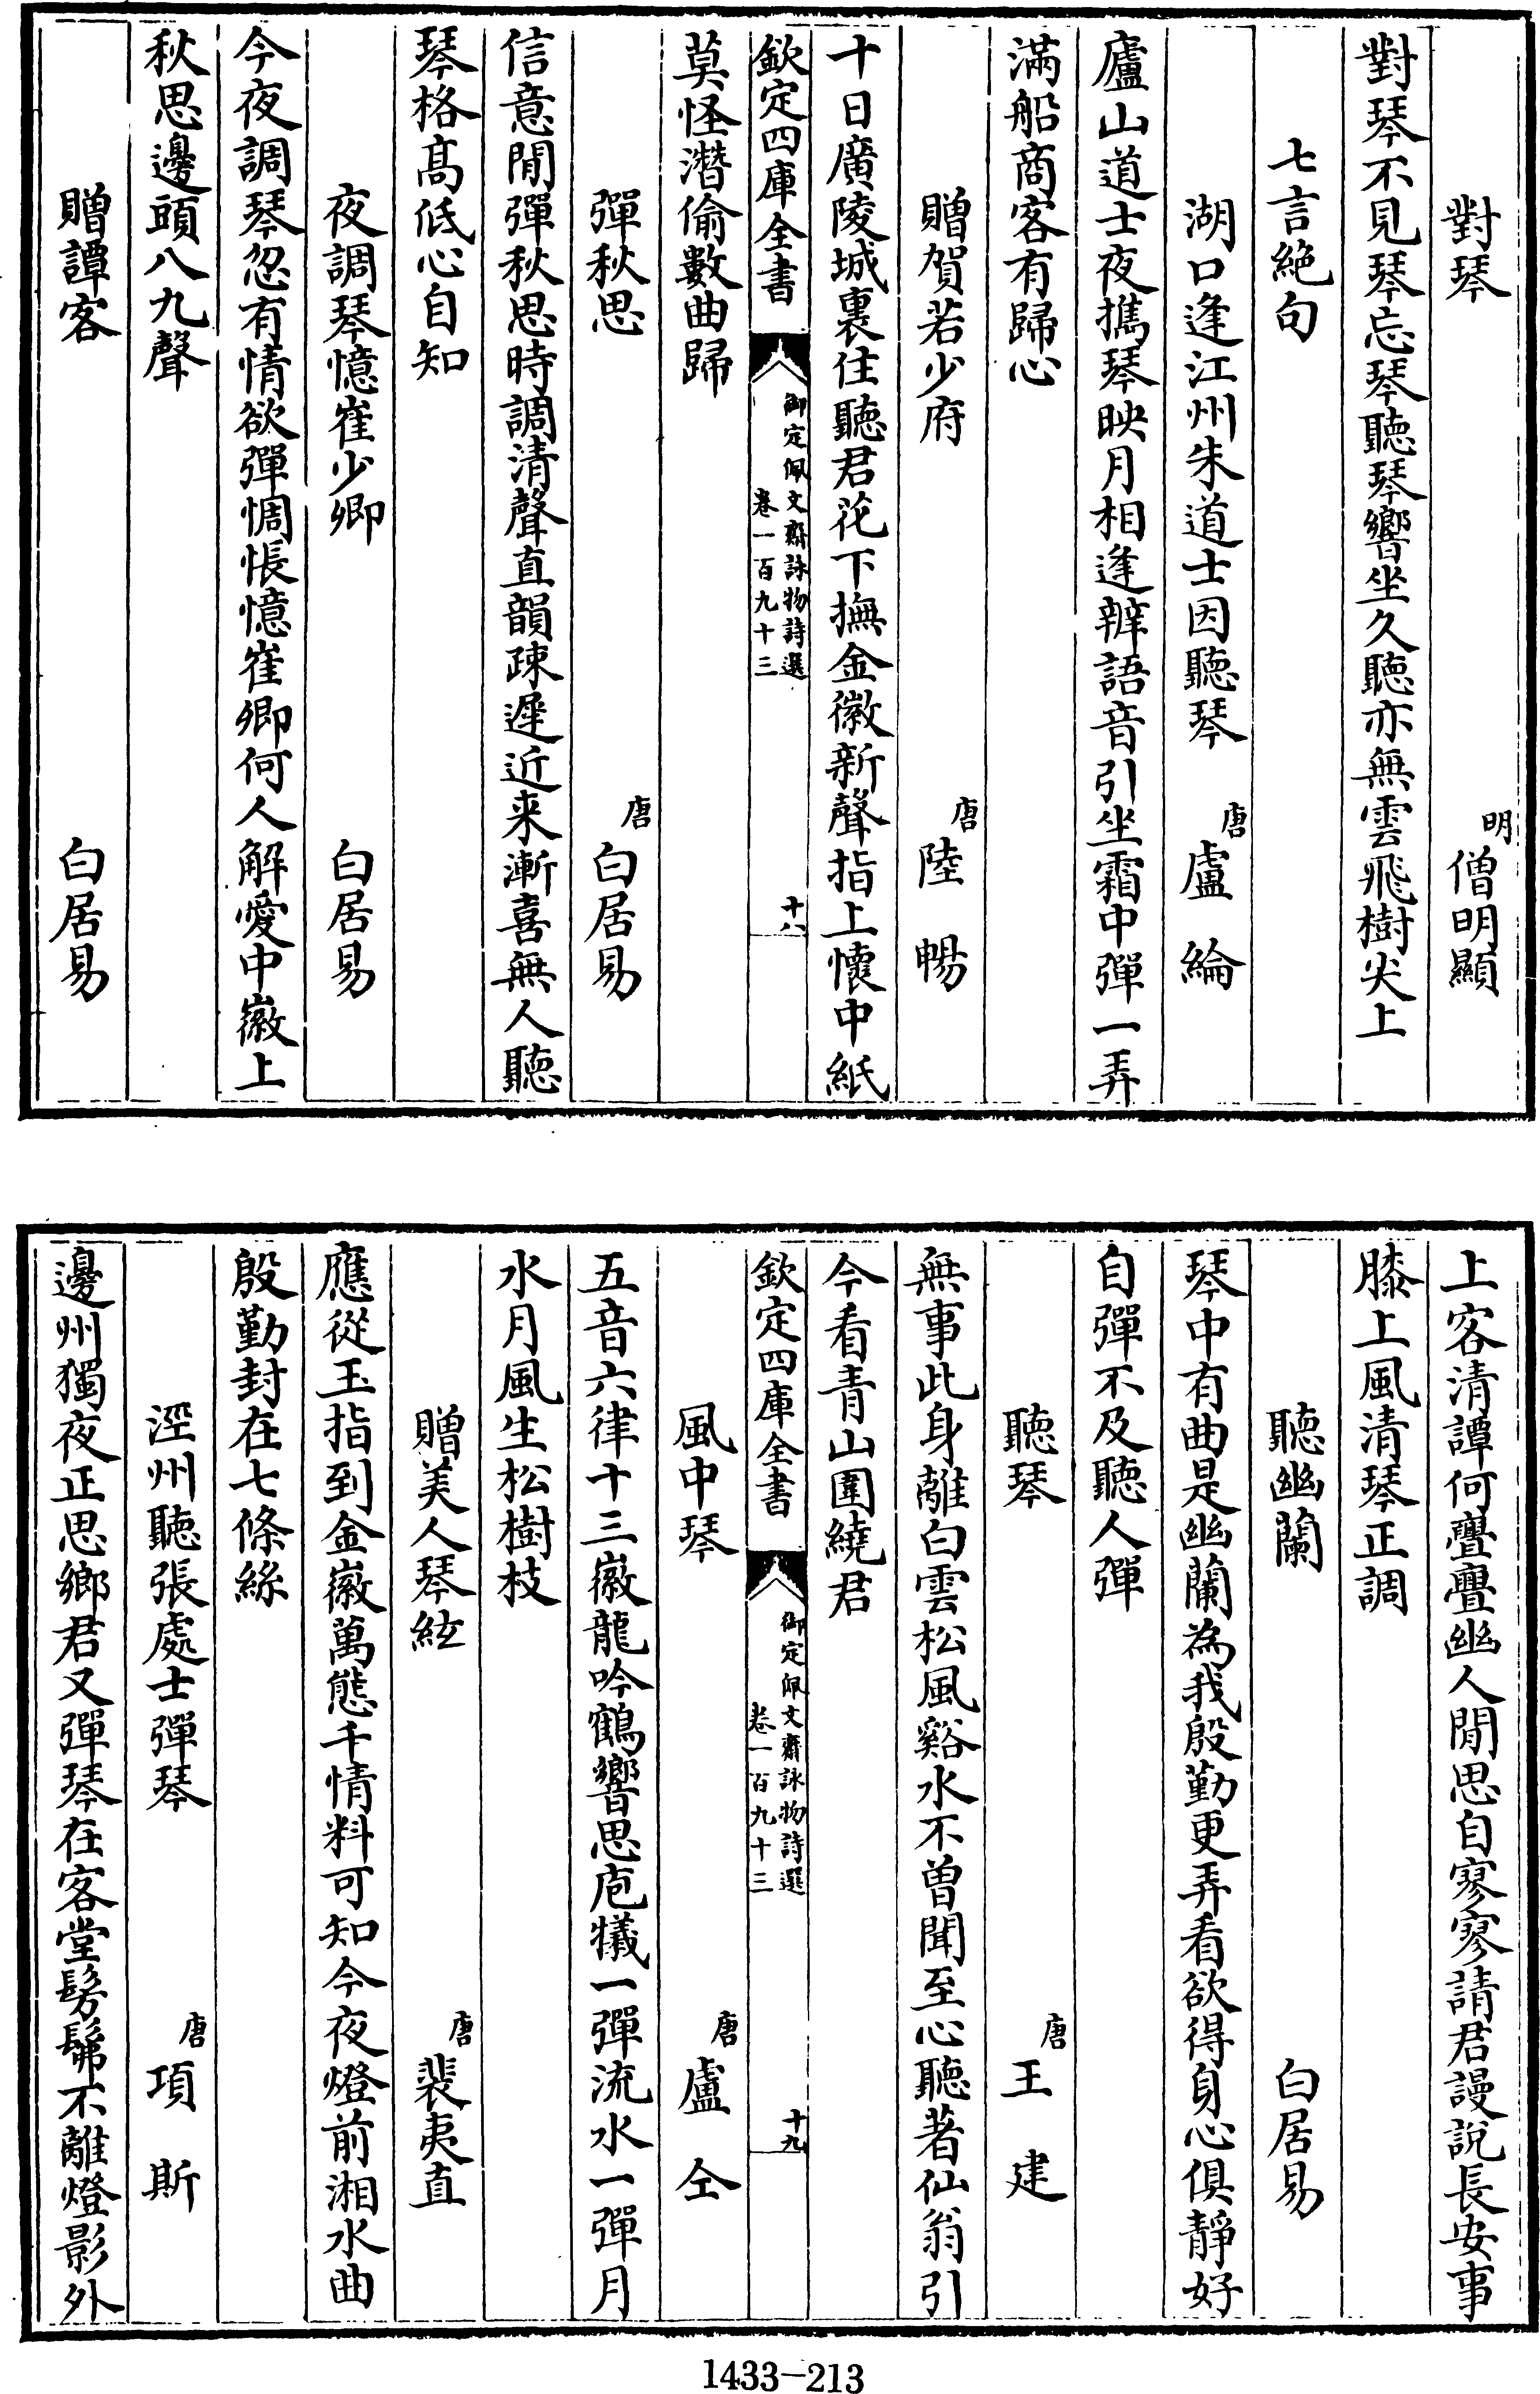 對琴 明僧明顯
對琴不見琴忘琴聽琴響坐久聽亦無雲飛樹尖上
七言絶句
湖口逢江州朱道士因聽琴 唐盧綸
廬山道士夜攜琴映月相逢辨語音引坐霜中彈一弄
滿船商客有歸心
贈賀若少府 唐陸暢
十日廣陵城裏住聽君花下撫金徽新聲指上懷中紙
欽定四庫全書 御定佩文齋詠物詩選 卷一百九十三 十八
莫怪潛偷數曲歸
彈秋思 唐白居易
信意閒彈秋思時調清聲直韻疎遲近来漸喜無人聽
琴格髙低心自知
夜調琴憶崔少卿 白居易
今夜調琴忽有情欲彈惆悵憶崔卿何人解愛中徽上
秋思邊頭八九聲
贈譚客 白居易
上客清譚何亹亹幽人閒思自寥寥請君謾説長安事
膝上風清琴正調
聽幽蘭 白居易
琴中有曲是幽蘭為我殷勤更弄看欲得身心俱靜好
自彈不及聽人彈
聽琴 唐王建
無事此身離白雲松風谿水不曽聞至心聽著仙翁引
今看青山圍繞君
欽定四庫全書 御定佩文齋詠物詩選 卷一百九十三 十九
風中琴 唐盧仝
五音六律十三徽龍吟鶴響思庖犧一彈流水一彈月
水月風生松樹枝
贈美人琴絃 唐裴夷直
應從玉指到金徽萬態千情料可知今夜燈前湘水曲
殷勤封在七條絲
涇州聽張處士彈琴 唐項斯
邊州獨夜正思鄉君又彈琴在客堂髣髴不離燈影外
1433-213